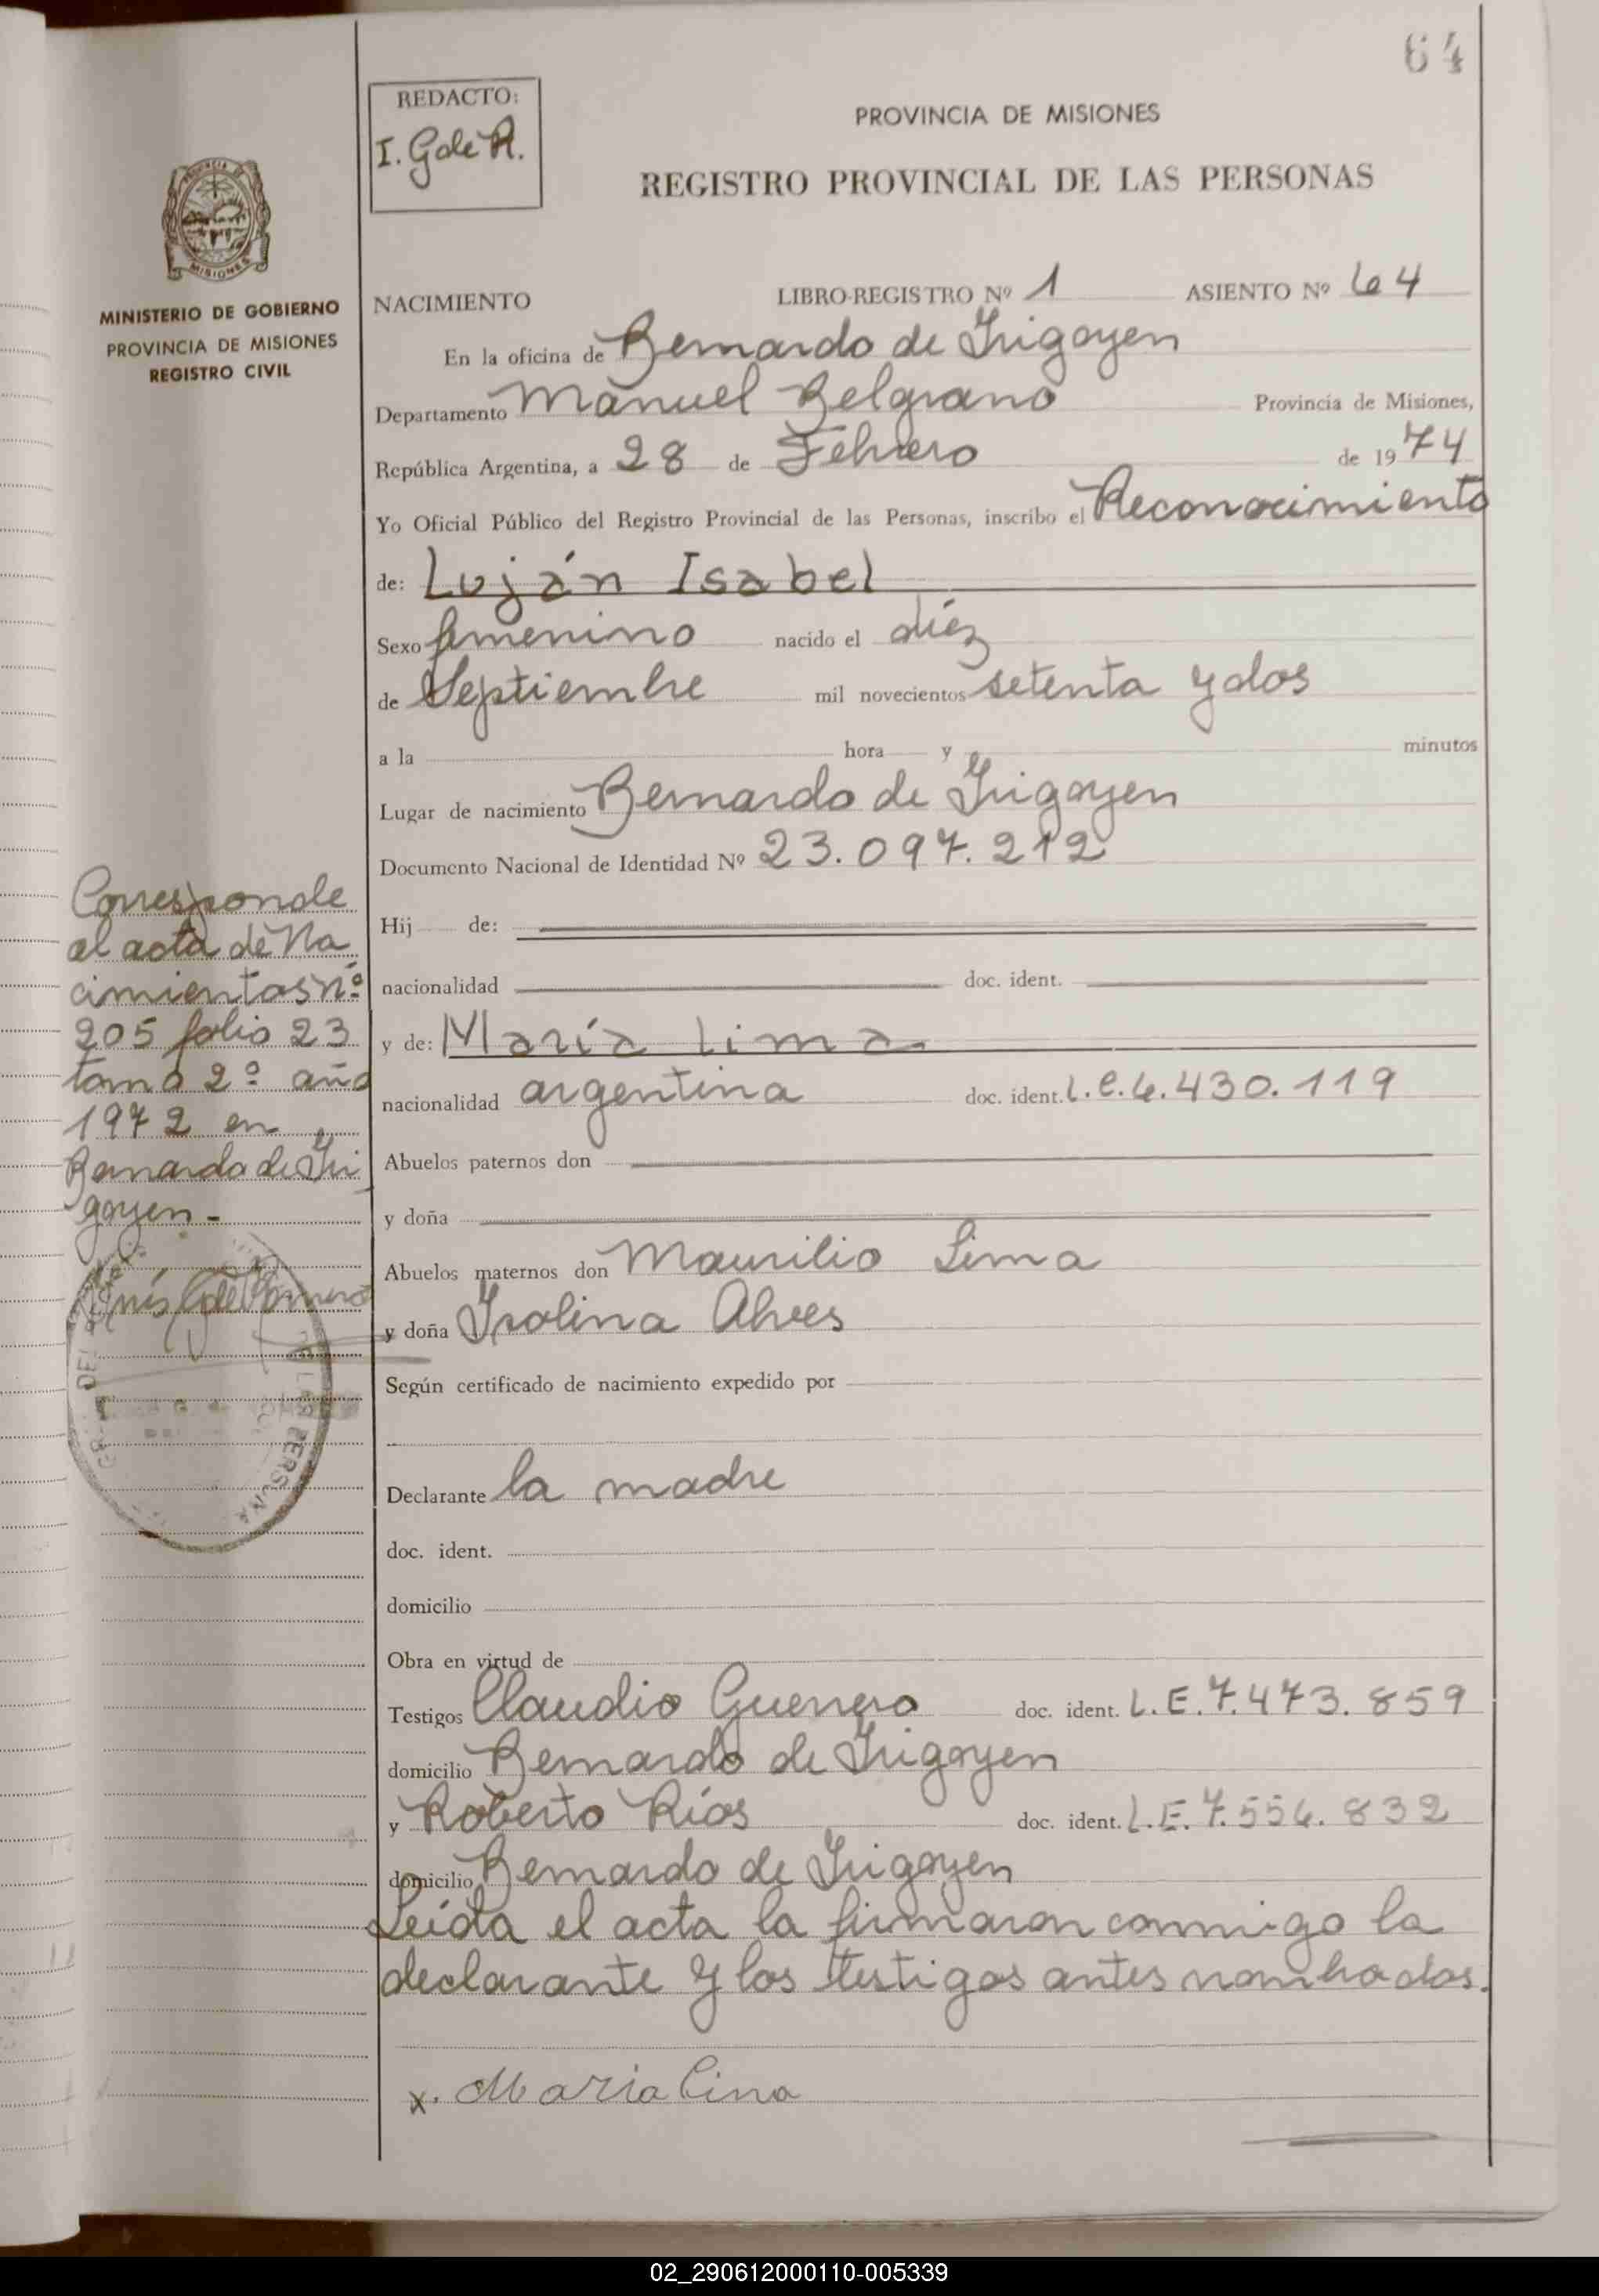 64
REDACTO:
I. Galé R.
PROVINCIA DE MISIONES
REGISTRO PROVINCIAL DE LAS PERSONAS
MISIONES
MINISTERIO DE GOBIERNO
PROVINCIA DE MISIONES
REGISTRO CIVIL
NACIMIENTO LIBRO-REGISTRO Nº 1 ASIENTO Nº 64
En la oficina de Bernardo de Irigoyen
Departamento Manuel Belgrano Provincia de Misiones,
República Argentina, a 28 de Febrero de 1974
Yo Oficial Público del Registro Provincial de las Personas, inscribo el Reconocimiento
de: Luján Isabel
Sexo femenino nacido el diéz
de Septiembre mil novecientos setenta y dos
a la hora y minutos
Lugar de nacimiento Bernardo de Irigoyen
Documento Nacional de Identidad Nº 23.097.212
Hij de:
nacionalidad doc. ident.
y de: María Lima
nacionalidad argentina doc. ident. L.C.6.430.119
Abuelos paternos don
y doña
Abuelos maternos don Maurilio Lima
y doña Isolina Alves
Según certificado de nacimiento expedido por
Declarante la madre
doc. ident.
domicilio
Obra en virtud de
Testigos Claudio Guerrero doc. ident. L.E.7.473.859
domicilio Bernardo de Irigoyen
y Roberto Ríos doc. ident. L.E.7.556.832
domicilio Bernardo de Irigoyen
Leída el acta la firmaron conmigo la
declarante y los testigos antes nombrados.
x. Maria Lima
Corresponde
al acta de Na
cimientos nº
205 folio 23
tomo 2º año
1972 en
Bernardo de Iri
goyen.-
02_290612000110-005339